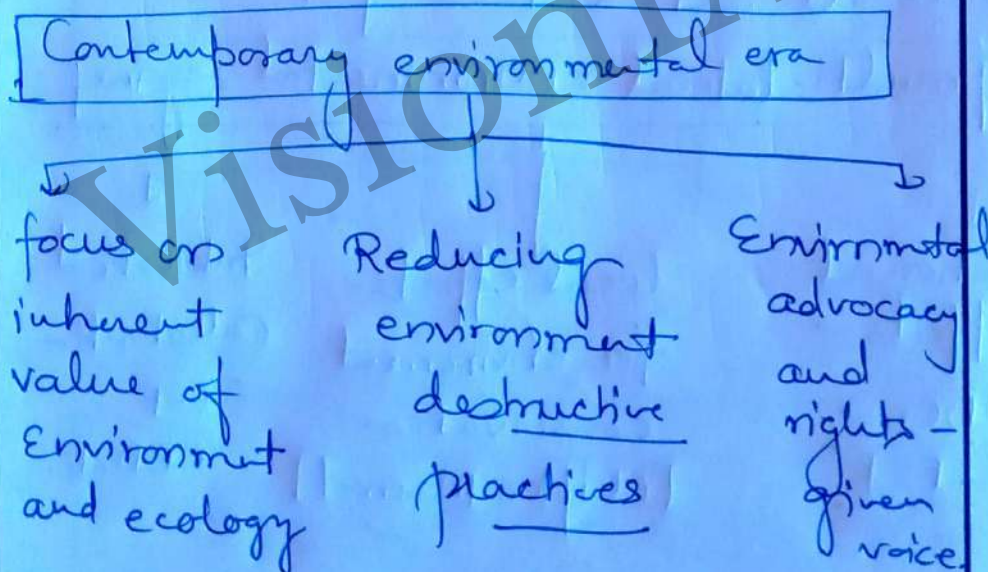 Contemporary environmental era
focus on
inherent
value of
Environmet
and ecology
Reducing
environment
destructive
practices
Envirnmetal
advocacy
and
rights -
given
voice.